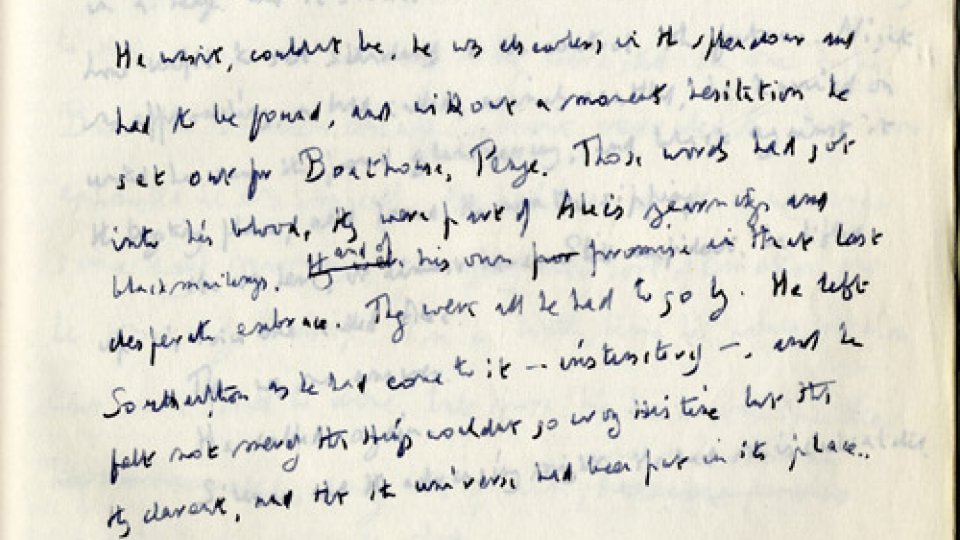 He wasn't, couldn't be. he was elsewhere in the splendour and
had to be found, and without a moment's hesitation he
set out for Boathouse, Penge. Those words had got
into his blood, they were part of Alec's yearnings and
blackmailings, and of his own promise in that last
desperate embrace. They were all he had to go by. He left
Southampton as he had come to it — instinctively —, and he
felt not merely that things wouldn't go wrong this time but that
they daren't, and that the universe had been put in its place..